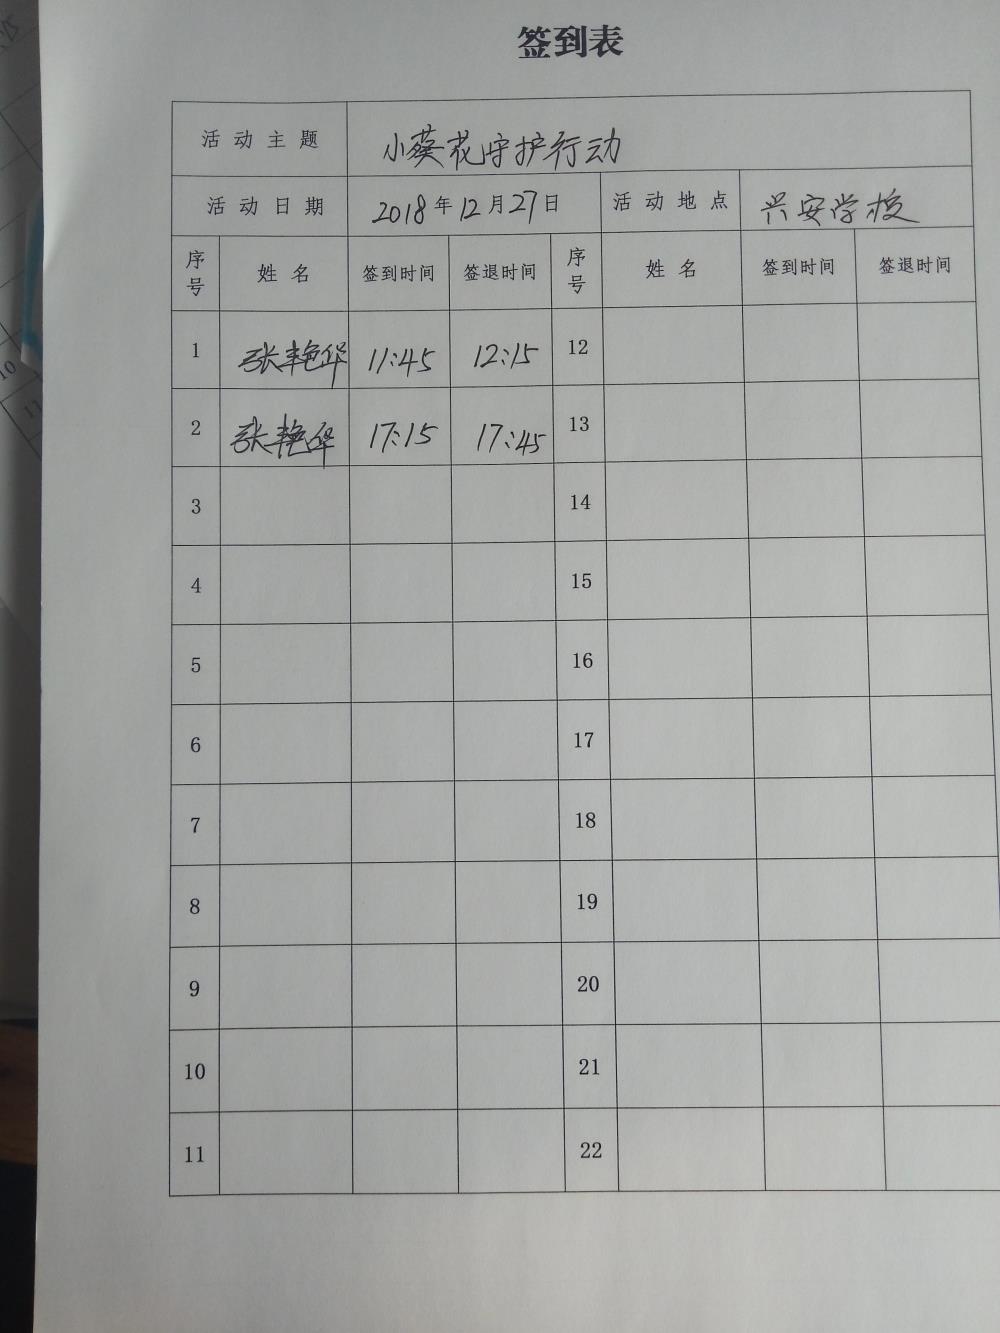 签到表
活动主题 小葵花守护行动
活动日期 2018年12月27日 活动地点 兴安学校
序号 姓名 签到时间 签退时间 序号 姓名 签到时间 签退时间
1 张艳华 11:45 12:15 12
2 张艳华 17:15 17:45 13
3 14
4 15
5 16
6 17
7 18
8 19
9 20
10 21
11 22
10
11